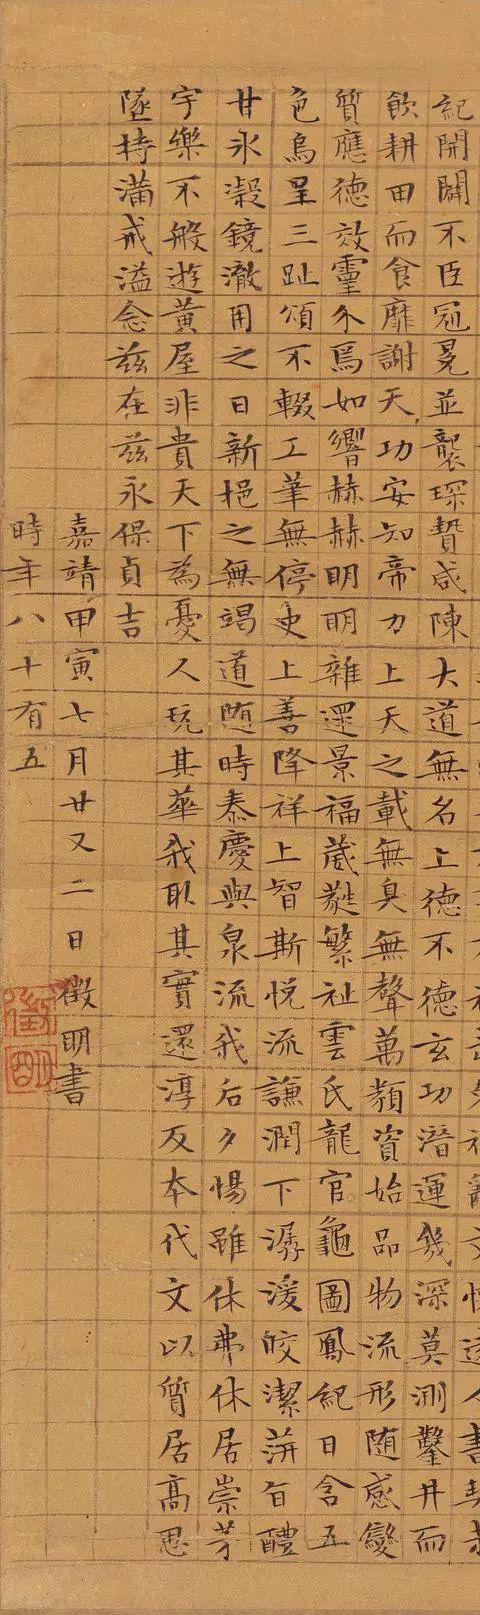 紀開闢不臣冠冕並襲琛贄咸陳大道無名上德不德玄功潛運幾深莫測鑿井而
飲耕田而食靡謝天功安知帝力上天之載無臭無聲萬類資始品物流形随感變
質應德效靈介焉如響赫赫明明雜還景福葳蕤繁祉雲氏龍官龜圖鳳紀日含五
色烏呈三趾頌不輟工筆無停史上善降祥上智斯悅流謙潤下潺湲皎潔蓱旨醴
甘氷凝鏡澈用之日新挹之無竭道随時泰慶與泉流我后夕惕雖休弗休居崇茅
宇樂不般遊黃屋非貴天下為憂人玩其華我取其實還淳反本代文以質居高思
墜持滿戒溢念茲在茲永保貞吉
嘉靖甲寅七月廿又二日徵明書
時年八十有五
徵明